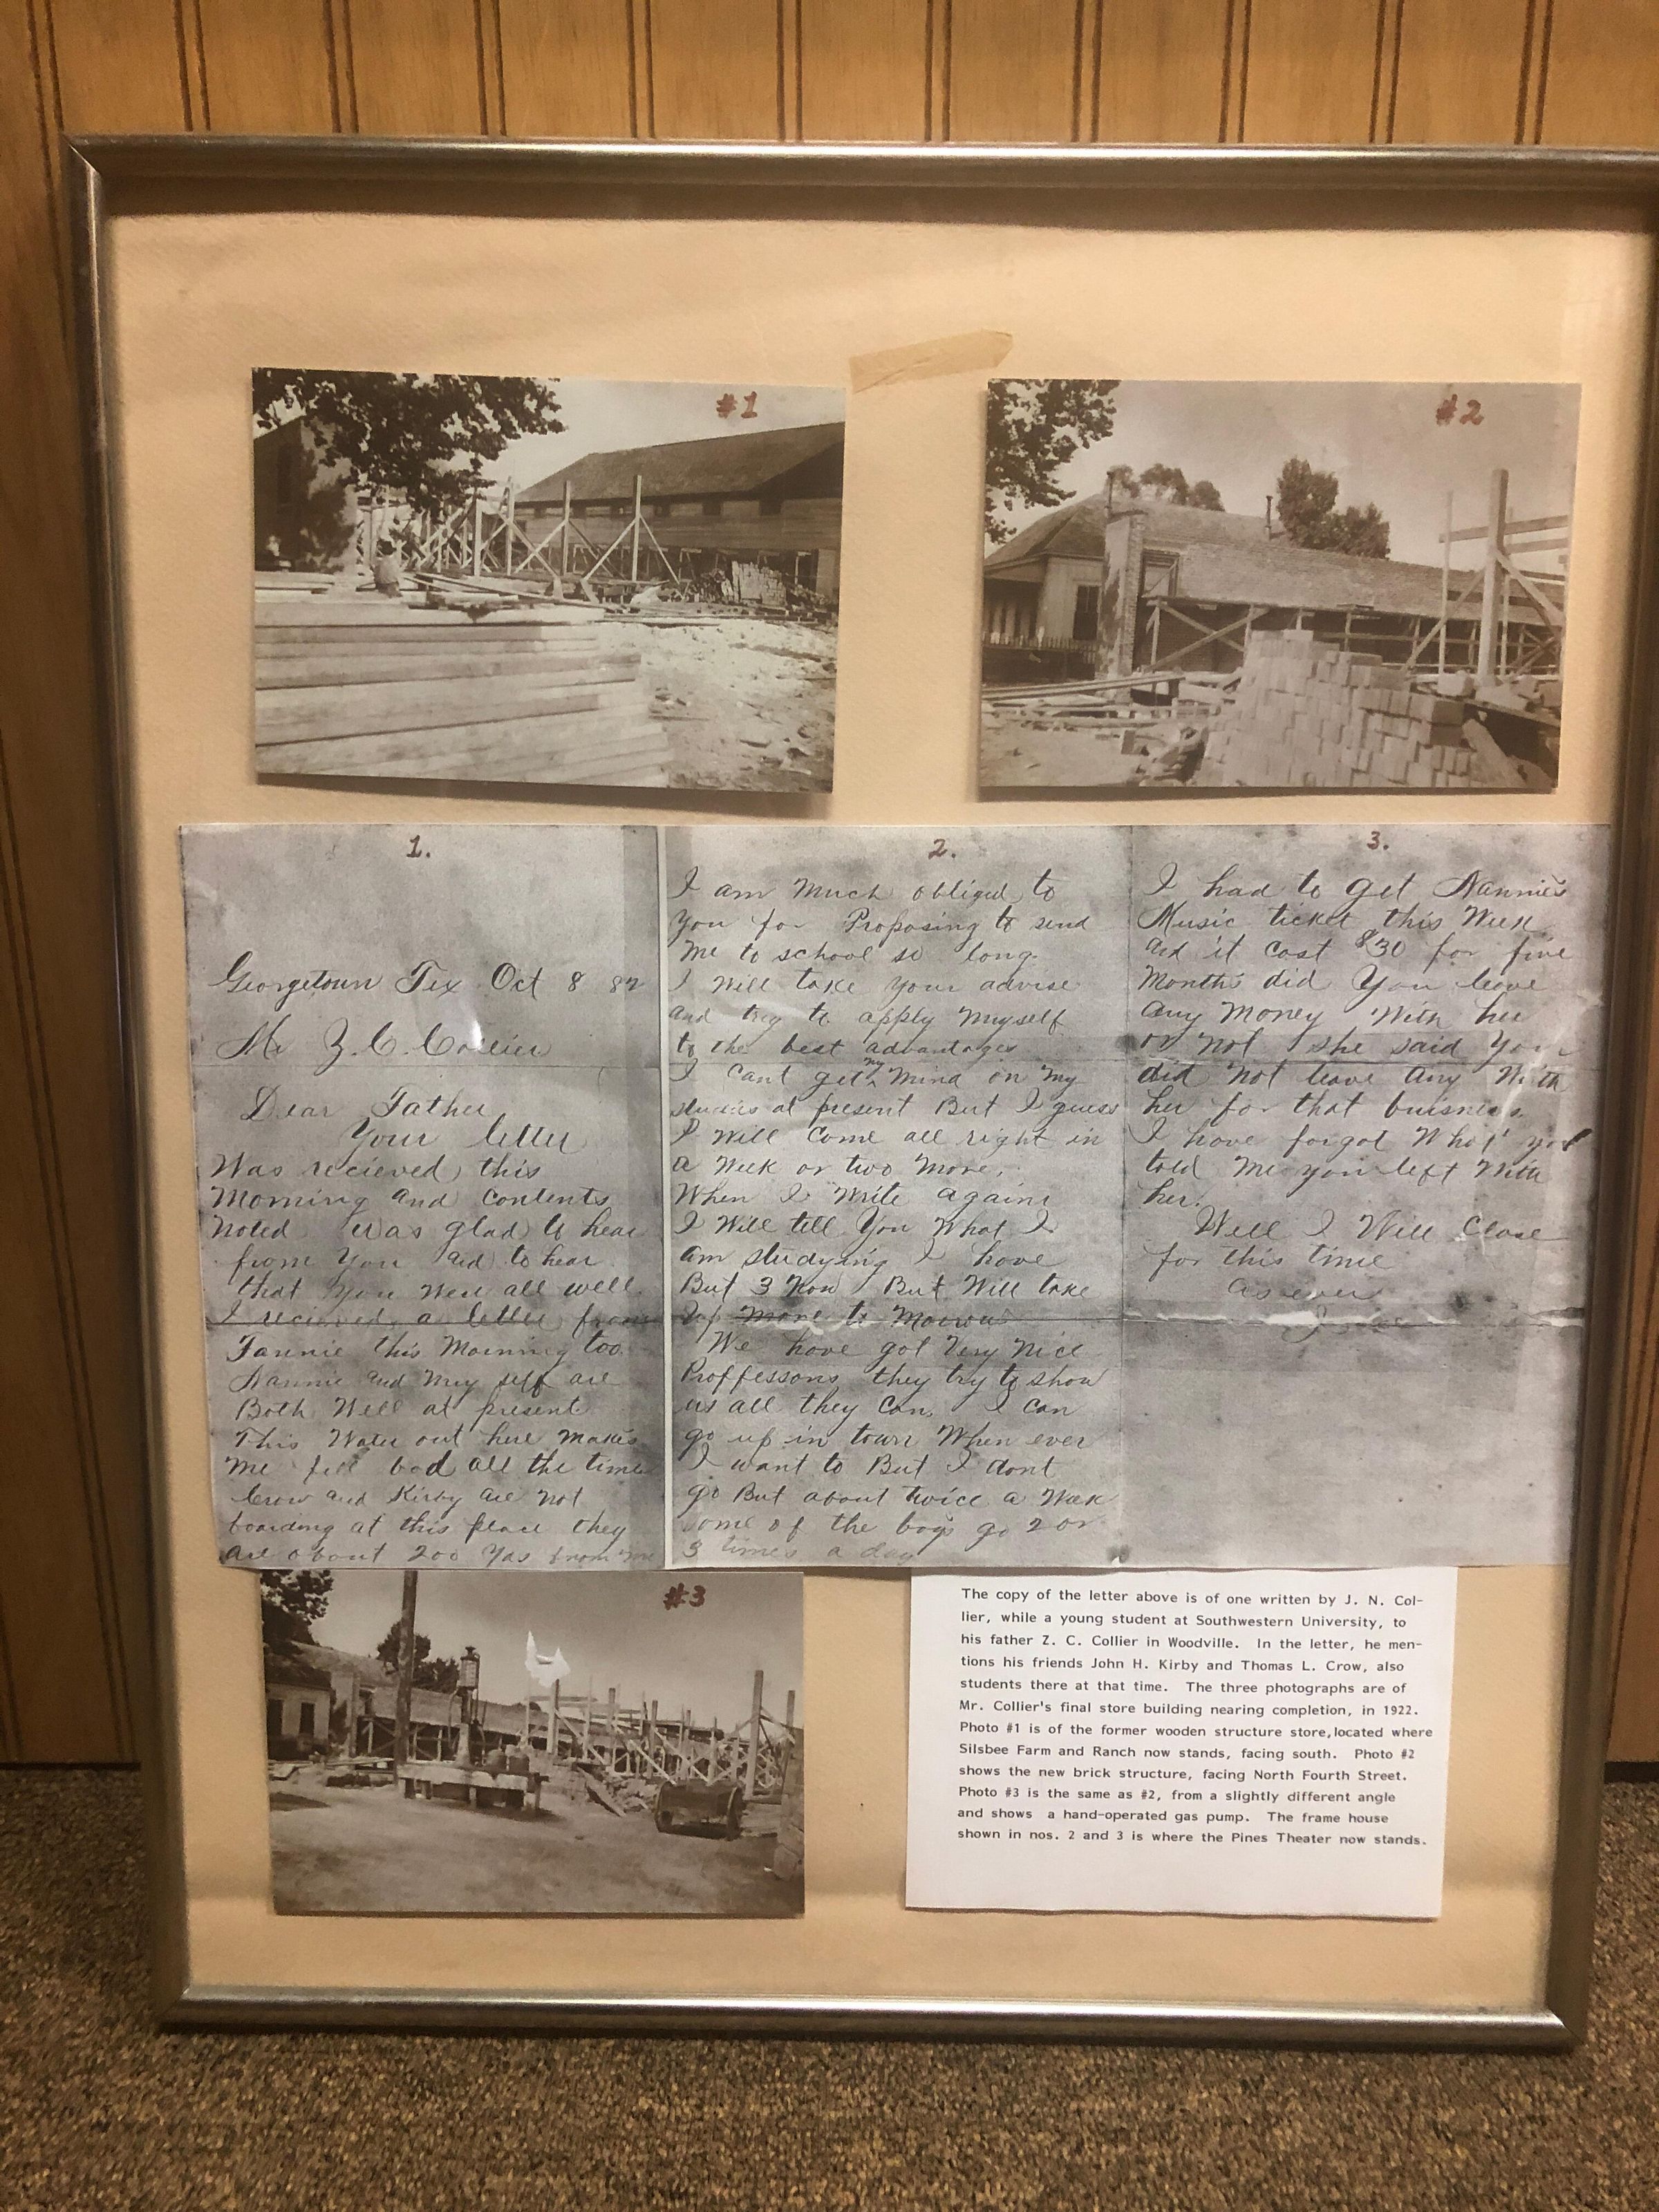 #1
#2
1.
Georgetown Tex Oct 8 82
Mr Z. C. Collier
Dear Father
Your letter
Was recieved this
Morning and contents
noted was glad to hear
from You and to hear
that You Were all well
I recieved a letter from
Fannie this Morning too
Nannie and My self are
Both Well at present
This Water out here makes
me fell bad all the time
Crow and Kirby are not
boarding at this place they
are about 200 Yds from me
2.
I am Much obliged to
You for Proposing to send
Me to school so long.
I Will take your advise
and try to apply Myself
to the best advantages
I Cant get my Mind on My
studies at present But I guess
I Will Come all right in
a Week or two More.
When I Write again
I Will tell You What I
am studying I have
But 3 Now But Will take
up More to Morrow
We have got Very Nice
Proffessons they try to show
us all they Can. I Can
go up in town When ever
I want to But I dont
go But about twice a Week
some of the boys go 2 or
3 times a day
3.
I had to get Nannie's
Music ticket this Week
and it cost $30 for five
Months did You leave
any Money With her
or Not she said You
did Not leave any With
her for that buisness.
I have forgot What you
told Me you left With
her.
Well I Will Close
for this time
As ever
#3
The copy of the letter above is of one written by J. N. Col-
lier, while a young student at Southwestern University, to
his father Z. C. Collier in Woodville. In the letter, he men-
tions his friends John H. Kirby and Thomas L. Crow, also
students there at that time. The three photographs are of
Mr. Collier's final store building nearing completion, in 1922.
Photo #1 is of the former wooden structure store,located where
Silsbee Farm and Ranch now stands, facing south. Photo #2
shows the new brick structure, facing North Fourth Street.
Photo #3 is the same as #2, from a slightly different angle
and shows a hand-operated gas pump. The frame house
shown in nos. 2 and 3 is where the Pines Theater now stands.